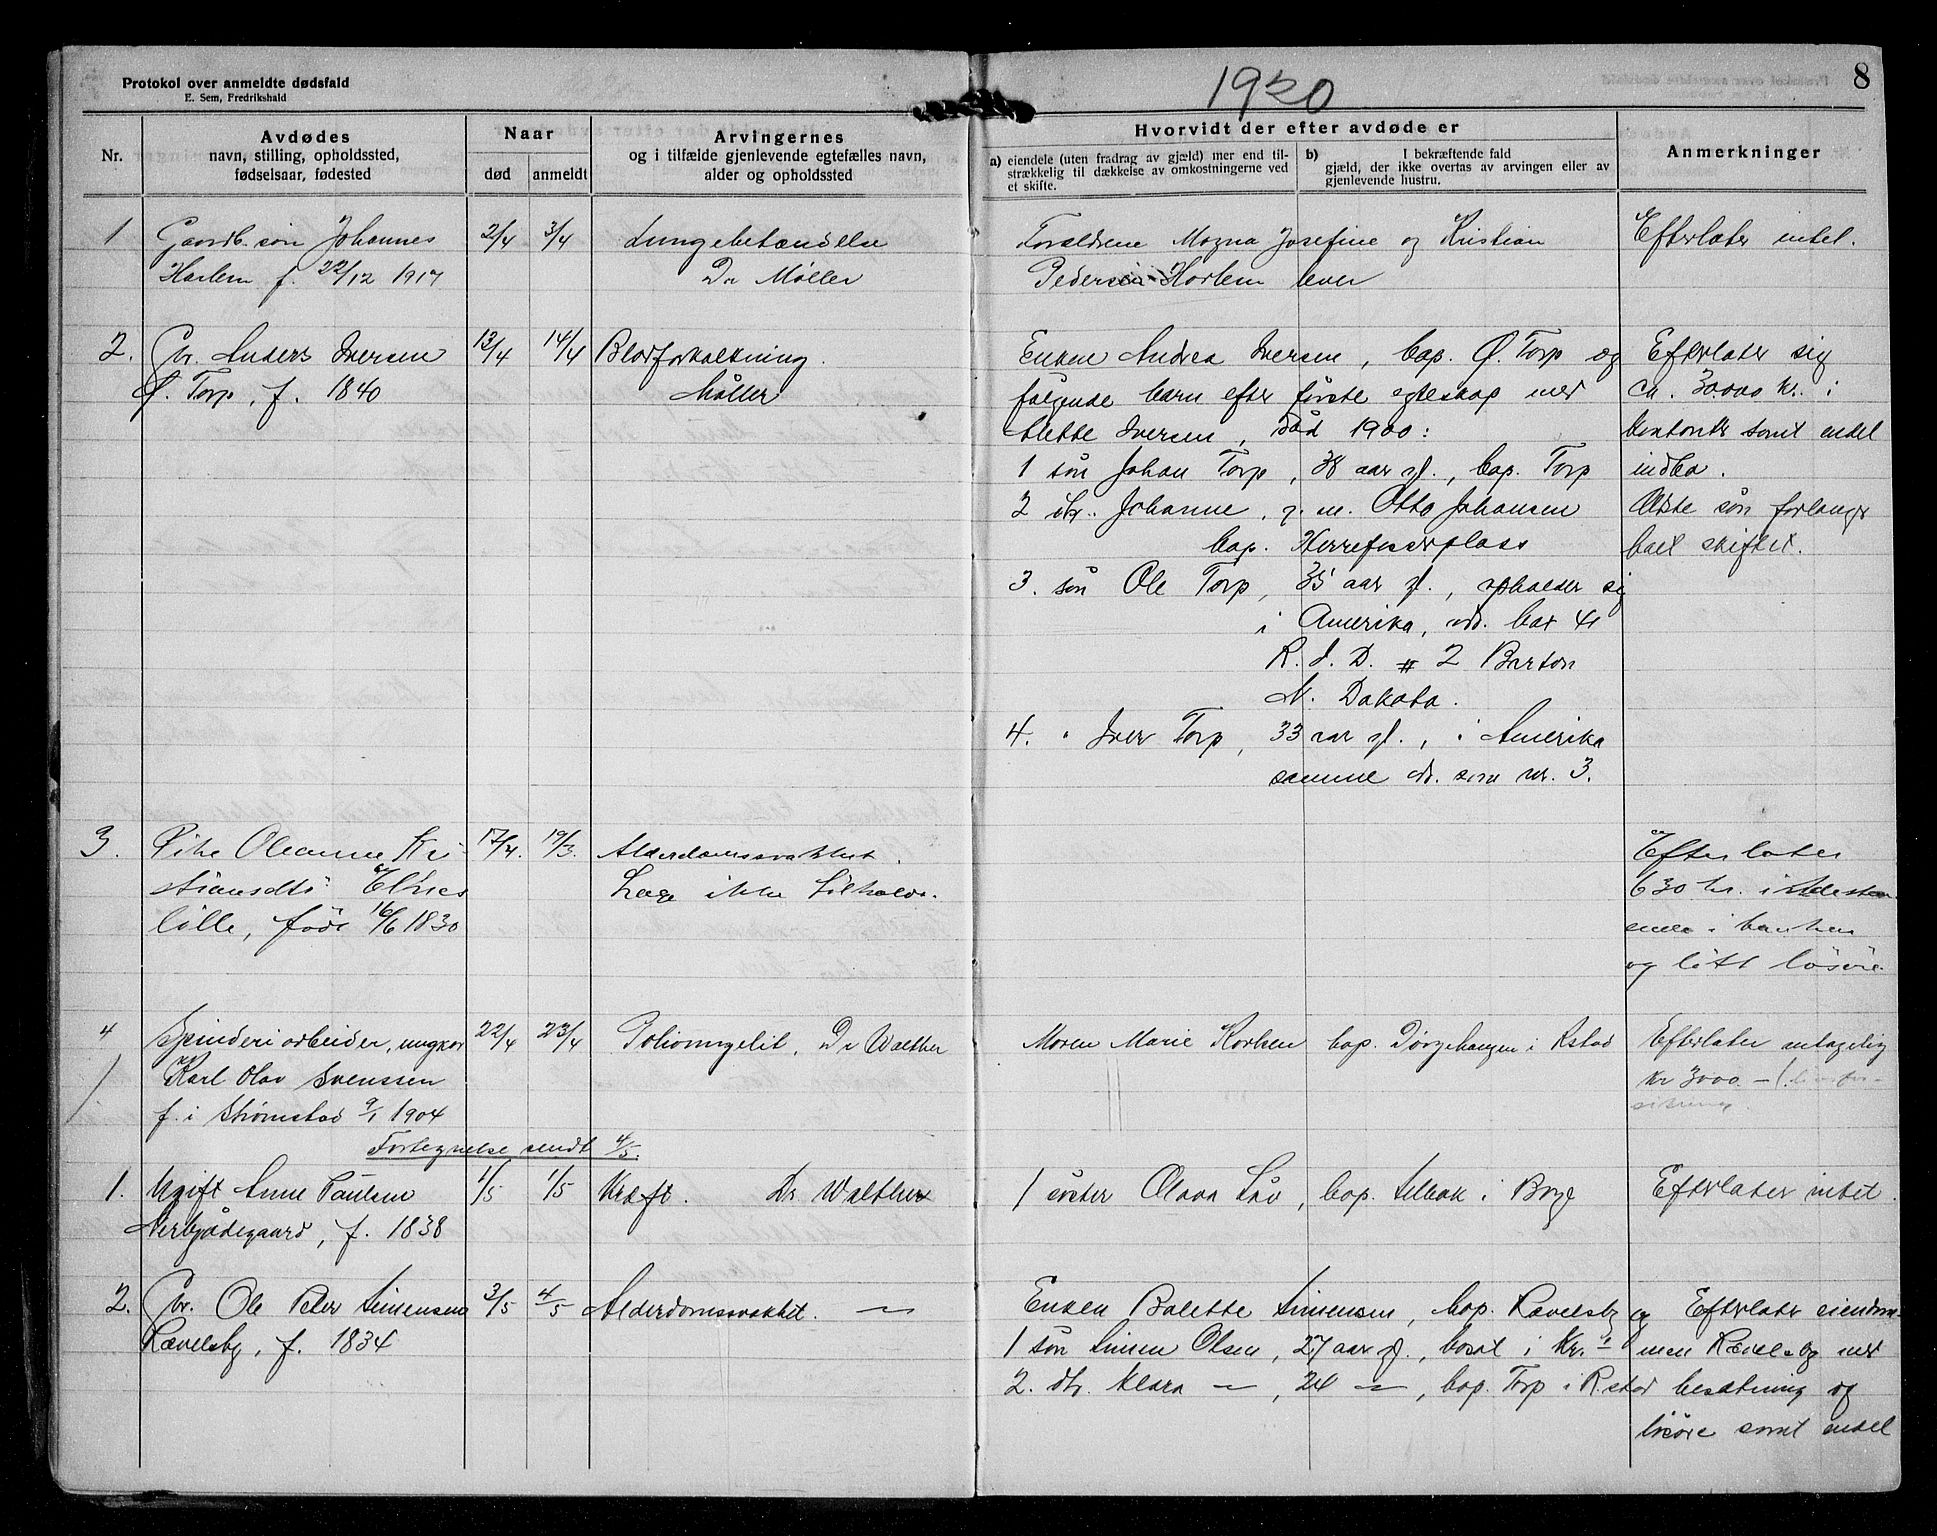 Protokol over anmeldte dødsfald
E. Sem, Fredrikshald
1920
8
Nr.
Avdødes
navn, stilling, opholdssted,
fødselsaar, fødested
Naar
død
anmeldt
Arvingernes
og i tilfælde gjenlevende egtefælles navn,
alder og opholdssted
Hvorvidt der efter avdøde er
a) eiendele (uten fradrag av gjæld) mer end til-
strækkelig til dækkelse av omkostningerne ved
et skifte.
b) I bekræftende fald
gjæld, der ikke overtas av arvingen eller av
gjenlevende hustru.
Anmerkninger
1
Gaardb. søn Johannes
Harlem f. 22/12 1917
2/4
3/4
Lungebetændelse
Dr Møller
Forældrene Magna Josefine og Kristian
Pedersen Horlem lever
Efterlater intet.
2.
Gbr. Anders Iversen
Ø. Torp, f. 1840
13/4
14/4
Blodforkalkning.
Møller
Enken Andrea Iversen, bop. Ø. Torp og
følgende barn efter første egteskap med
Mette Iversen, død 1900:
1 søn Johan Torp, 38 aar gl., bop. Torp
2 dtr. Johanne, g. m. Otto Johansen
bop. Herrefosserplass
3. søn Ole Torp, 35 aar gl., opholder sig
i Amerika, adr. box 41
R. F. D. # 2 Barton
N. Dakota.
4. " Iver Torp, 33 aar gl., i Amerika
samme adr. som nr. 3.
Efterlater sig
ca. 30.000 kr. i
kontanter samt endel
indbo.
Ældste søn forlanger
boet skiftet.
3.
Pike Oleanne Kri-
stiansdtr Elnes
lille, født 16/6 1830
17/4.
19/3.
Alderdomssvakhet.
Læge ikke tilkaldt.
Efterlater
630 kr. indesta-
ende i banken
og litt løsøre.
4
Spinderiarbeider, ungkar
Karl Olav Svenssen
f. i Strømstad 9/1 1904
22/4
23/4
Poliomyelit, Dr Walther
Moren Marie Korben bop. Dørjehaugen i Rstad
Efterlater antagelig
kr 3000.- (livsfor-
sikring
Fortegnelse sendt 4/5.
1.
Ugift Anne Paulsen
Nerbjødegaard, f. 1838
1/5
1/5
Kræft. Dr. Walther
1 søster Olava Løv, bop. Selbak i Borge
Efterlater intet.
2.
Gbr. Ole Peter Simensen
Rævelsby, f. 1834
3/5
4/5
Alderdomssvakhet. —
Enken Balette Simensen, bop. Rævelsby og
1 søn Simen Olsen, 27 aar gl., bosat i Kr.a
2. dtr. Klara — , 24 — , bop. Torp i R.stad
Efterlater eiendom-
men Rævelsby med
besætning og
løsøre samt endel